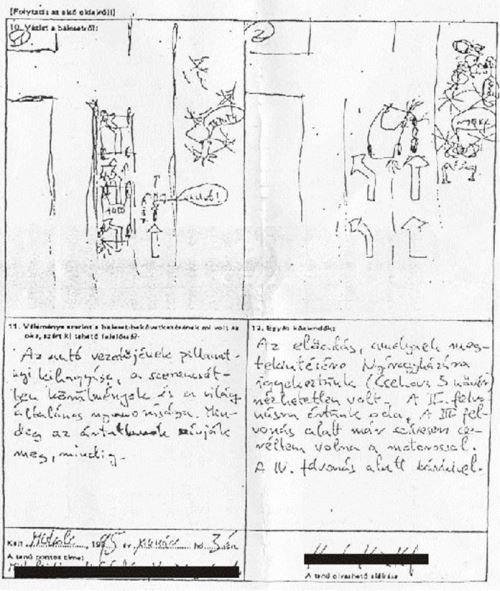 [Folytatás az első oldalról!]
10. Vázlat a balesetről:
1
2
11. Véleménye szerint a baleset bekövetkezésének mi volt az
oka, azért ki tehető felelőssé?
Az autó vezetőjének pillanat-
nyi kihagyása, a szerencsét-
len körülmények és a világ
általános nyomorúsága. Min-
dig az ártatlanok szívják
meg, mindig.
12. Egyéb közlendők:
Az előadás, amelynek meg-
tekintésére Nyíregyházára
igyekeztünk (Csehov: 3 nővér)
nézhetetlen volt. A II. felvo-
násra értünk oda. A III. fel-
vonás alatt már szívesen cse-
réltem volna a motorossal.
A IV. felvonás alatt
Kelt Miskolc, 1995 év hó 3 -án
A tanú pontos címe:
A tanú olvasható aláírása